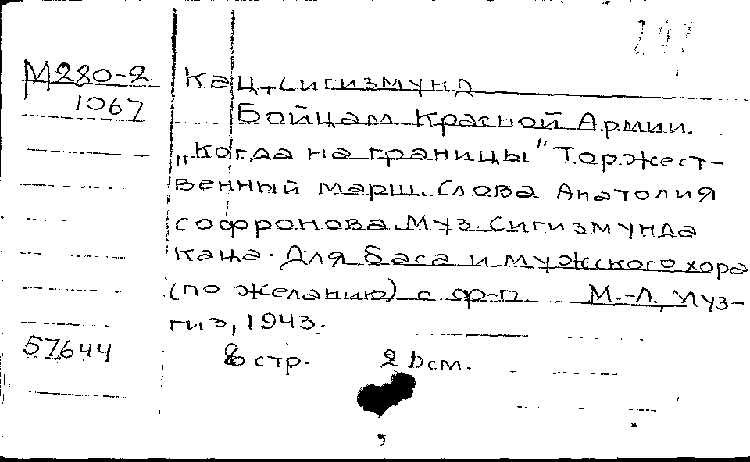 М280-2 Кац, Сигизмунд
1067 Бойцам Красной Армии.
„Когда на границы" Торжест-
венный марш. Слова Анатолия
Софронова. Муз. Сигизмунда
Каца. Для баса и мужского хора
(по желанию) с ф-п. М.-Л, Муз-
гиз, 1943.
57644 стр. см.